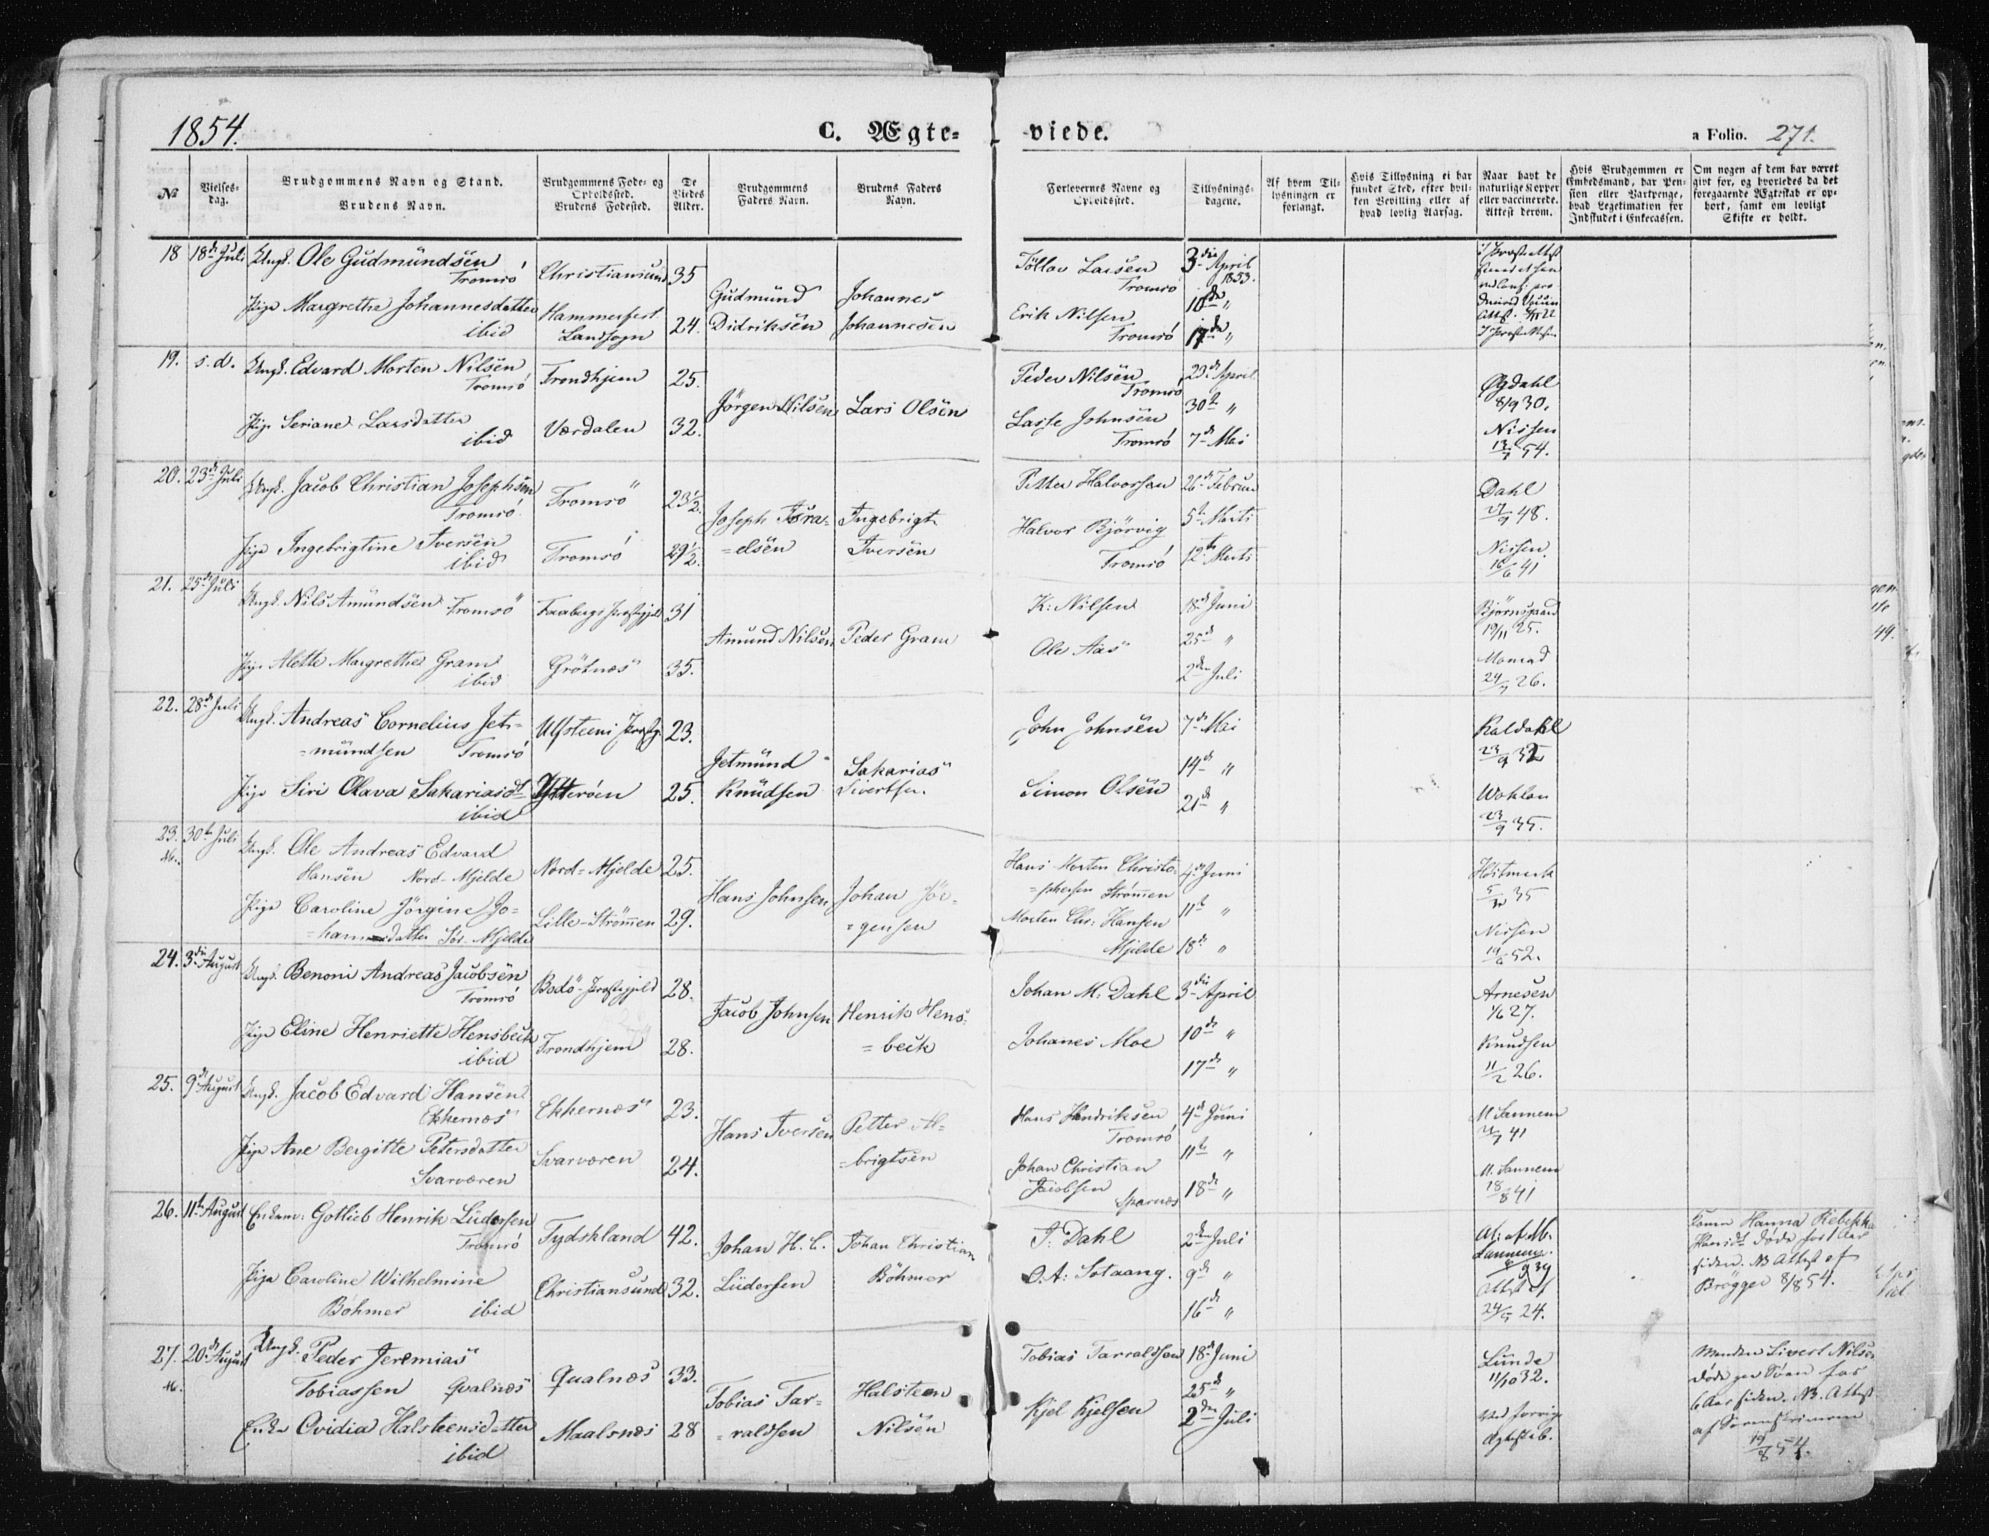 1854.
C. Ægte-
viede.
a Folio. 271.
No
Vielses-
dag.
Brudgommens Navn og Stand.
Brudens Navn.
Brudgommens Føde- og
Opholdssted.
Brudens Fødested.
De
Viedes
Alder.
Brudgommens
Faders Navn.
Brudens Faders
Navn.
Forlovernes Navne og
Opholdssted.
Tillysnings-
dagene.
Af hvem Til-
lysningen er
forlangt.
Hvis Tillysning ei har
fundet Sted, efter hvil-
ken Bevilling eller af
hvad lovlig Aarsag.
Naar havt de
naturlige Kopper
eller vaccinerede.
Attest derom.
Hvis Brudgommen er
Embedsmand, har Pen-
sion eller Vartpenge,
hvad Legetimation for
Indskudet i Enkecassen.
Om nogen af dem har været
givt før, og hvorledes da det
foregaaende Ægteskab er op-
hørt, samt om lovligt
Skifte er holdt.
18 18de Juli Ungk. Ole Gudmundsen
Tromsö
Christiansund 35
Pige Margrethe Johannesdatter
ibid
Hammerfest
Landsogn 24.
Gudmund
Didriksen
Johannes
Johannesen
Töllov Larsen
Tromsö
Erik Nilsen
Tromsö
3die April
1853.
10de "
17de "
19. s. d. Ungk. Edvard Morten Nilsen
Tromsö
Trondhjem 25.
Pige Seriane Larsdatter
ibid
Værdalen 32.
Jörgen Nilsen
Lars Olsen
Peder Nilsen
Tromsö
Lasse Johnsen
Tromsö
23de April
30te "
7de Mai
Øgdahl
8/9 30.
Nissen
54.
20. 23de Juli Ungk. Jacob Christian Josephsen
Tromsö
Tromsö 23½
Pige Ingebrigtine Iversen
ibid
Tromsö 29½.
Joseph Isra-
=elsen
Ingebrigt
Iversen
Petter Halvorsen
Halvor Bjørvig
Tromsö
26de Februar
5te Marts
12te Marts
Dahl
48.
Nissen
16/6 41
21. 25de Juli
Ungk. Nils Amundsen Tromsö
Faabergs Præstegjeld 31
Pige Alette Margrethe Gram
ibid
Grötnæs 35.
Amund Nilsen
Peder Gram
K: Nilsen
Ole Aas
18de Juni
25de "
2den Juli
19/11 25.
Monrad
26.
22. 28de Juli Ungk. Andreas Cornelius Jet-
=mundsen Tromsö
Ulfsteens Præstg. 23.
Pige Siri Olava Sakariasdt
ibid
Ytterøen 25.
Jetmund
Knudsen
Sakarias
Sivertsen.
John Johnsen
Simon Olsen
7de Mai
14de "
21de "
Kaldahl
23/9 32
23/9 35.
23. 30te Juli Ungk. Ole Andreas Edvard
Hansen Nord-Mjelde
Nord-Mjelde 25.
Pige Caroline Jörgine Jo-
=hannsdatter Sör-Mjelde
Lille-Strömmen 29.
Hans Johnsen
Johan Jör-
=gensen
Hans Morten Christo-
=phersen Strömmen
Morten Chr: Hansen
Mjelde
4de Juni
11te "
18de "
35
Nissen
52.
24. 3die August Ungk. Benoni Andreas Jacobsen
Tromsö
Bodö-Præstegjeld 28.
Pige Eline Henriette Hensbeck
ibid
Trondhjem 28.
Jacob Johnsen
Henrik Hens-
=beck
Johan M: Dahl
Johanes Moe
3die April
10de "
17de "
Arnesen
1/6 27.
Knudsen
11/2 26.
25. 9de August Ungk. Jacob Edvard Hansen
Ekkernæs
Ekkernæs 23.
Pige Ane Bergitte Petersdatter
Svarværen
Svarværen 24.
Hans Iversen
Petter
=brigtsen
Hans Hendriksen
Tromsö
Johan Christian
Jacobsen
4de Juni
11te "
18de "
M. Sannem
41
M. Sannem
18/8 41
26. 11te August Enkem: Gotlieb Henrik Lüdersen
Tromsö
Tydskland 42.
Pige Caroline Wilhelmine
Böhmer ibid
Christiansund 32.
Johan H. C.
Lüdersen
Johan Christian
Böhmer
J: Dahl
O. A: Sotaang.
2den Juli
9de "
16de "
At: af M.
39
Attest af
24.
Hanna Rebekka
døde for 1 Aar
siden. No Attest af
Brøgger 8/8 54.
27. 20de August Ungk. Peder Jeremias
Tobiassen Qvalnæs
Qualnæs 33.
Enke Ovidia Halsteensdatter
ibid
Maalsnæs 28
Tobias Tar-
=raldsen
Halsteen
Nilsen
Tobias Tarraldsen
Kjel Kjelsen
18de Juni
25de "
2den Juli
Lunde
11/10 32.
Manden Sivert Nilsen
døde paa Söen for
6 Aar siden. No. Attest
af
19/8 54.